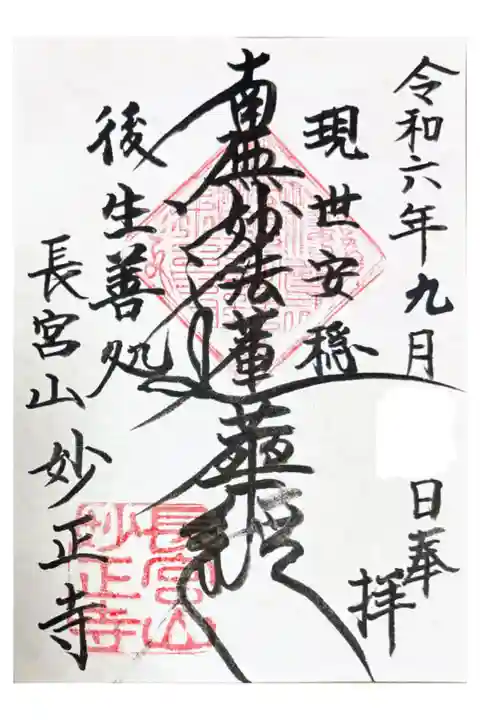 令和六年九月
日奉
拝
現世安穏
南無妙法蓮華経
後生善処
長宮山 妙正寺
長宮山
妙正寺